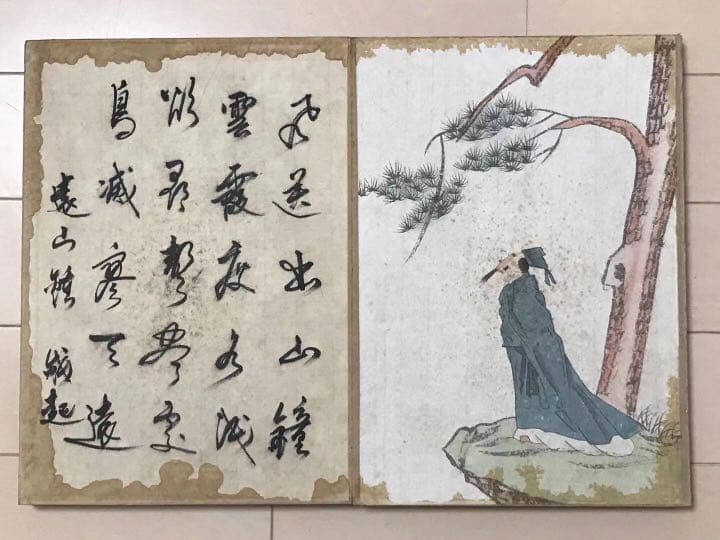 風送出山鐘
雲霞度水淺
欲尋聲盡處
鳥滅寥天遠
遠山鐘 錢起